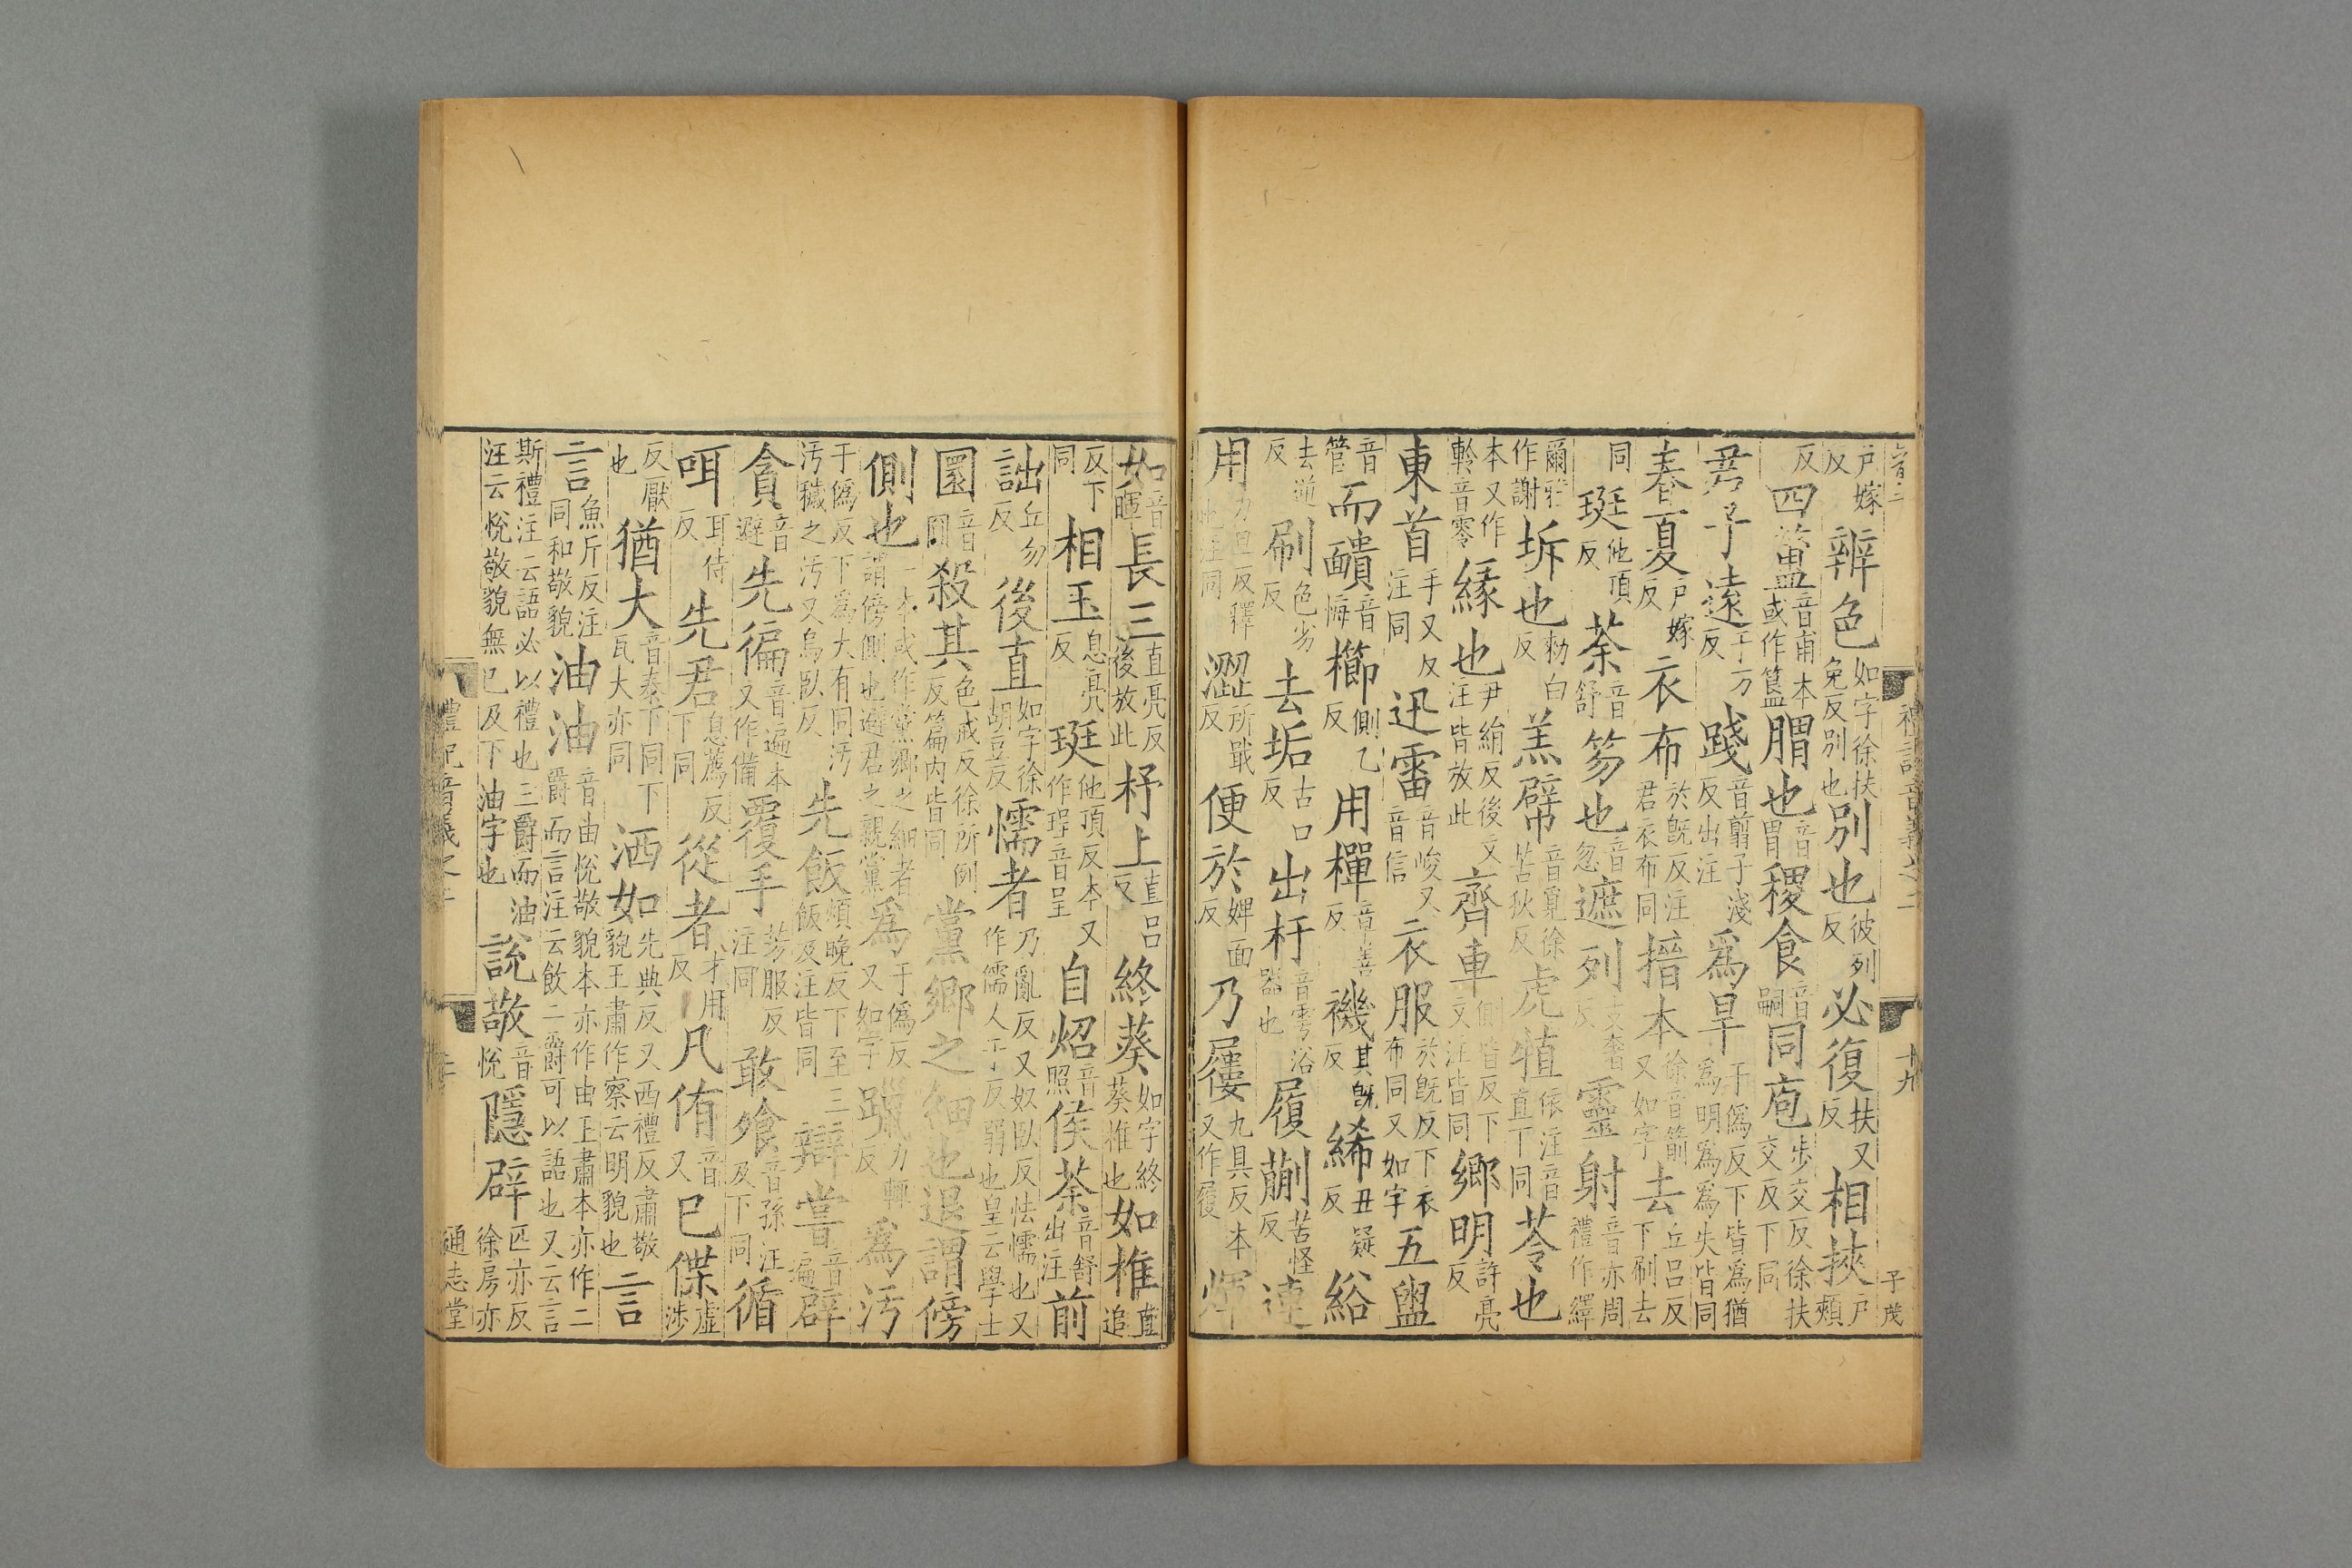 戶嫁反 辨色如字徐扶免反別也 別也彼列反 必復扶又反 相挾戶頰
反 四簋音甫本或作簋 胃也音胃 稷食音嗣 同庖步交反徐扶交反下同
君子遠于万反 踐音翦子淺反出注 爲旱于僞反下皆爲猶爲明爲爲失皆同
春夏戶嫁反 衣布於旣反注君衣布同 搢本徐音箭又如字 去丘呂反下刷去
同 珽他頂反 荼音舒 笏也音忽 遮列反 靈射音亦周禮作繹
爾雅作謝 坼也勑白反 羔幦音覓徐苦狄反 虎犆依注音直下同 苓也
本又作軨音零 緣也尹絹反後文注皆放此 齊車側皆反下文注皆同 鄉明許亮反
東首手又反注同 迅雷音峻又音信 衣服於旣反下衣布同又如字 五盥
音管 而靧音悔 櫛側乙反 用樿音善反 禨其旣反 絺丑疑反 綌
去逆反 刷色劣反 去垢古口反 出杅音雩浴器也 履蒯苦怪反 連
用力但反釋 澀所戢反 便於婢面反 乃屨九具反本又作履 煇
如暉音 長三直亮反後放此 杼上直呂反 終葵如字終葵椎也 如椎直追
反下同 相玉息亮反 珽他頂反本又作珵音呈 自炤音照 侯荼音舒出注 前
詘丘勿反 後直如字徐胡豆反 懦者乃亂反又奴臥反怯懦也又作儒人于反弱也皇云學士
圜音圓 殺其色戒反徐所例反篇內皆同 黨鄉之細也退謂傍
側也一本或作黨鄉之細者謂傍側也避君之親黨 爲于僞反又如字 躐力輒反 爲汚
于僞反下爲大有同汚汚穢之汚又烏臥反 先飯煩晚反下至三飯及注皆同 辯嘗音遍 辟
貪音避 先徧音遍本又作備 覆手芳服反注同 敢飱音孫注及下同 循
咡耳侍反 先君息薦反下同 從者才用反 凡侑音又 已偞虛涉
反厭也 猶大音泰下同下瓦大亦同 洒如先典反又西禮反肅敬貌王肅作察云明貌也 言
言魚斤反注同和敬貌 油油音由悅敬貌本亦作由王肅本亦作二爵而言注云飲二爵可以語也又云言
斯禮注云語必以禮也三爵而油注云悅敬貌無已及下油字也 說敬音悅 隱辟匹亦反徐房亦
通志堂